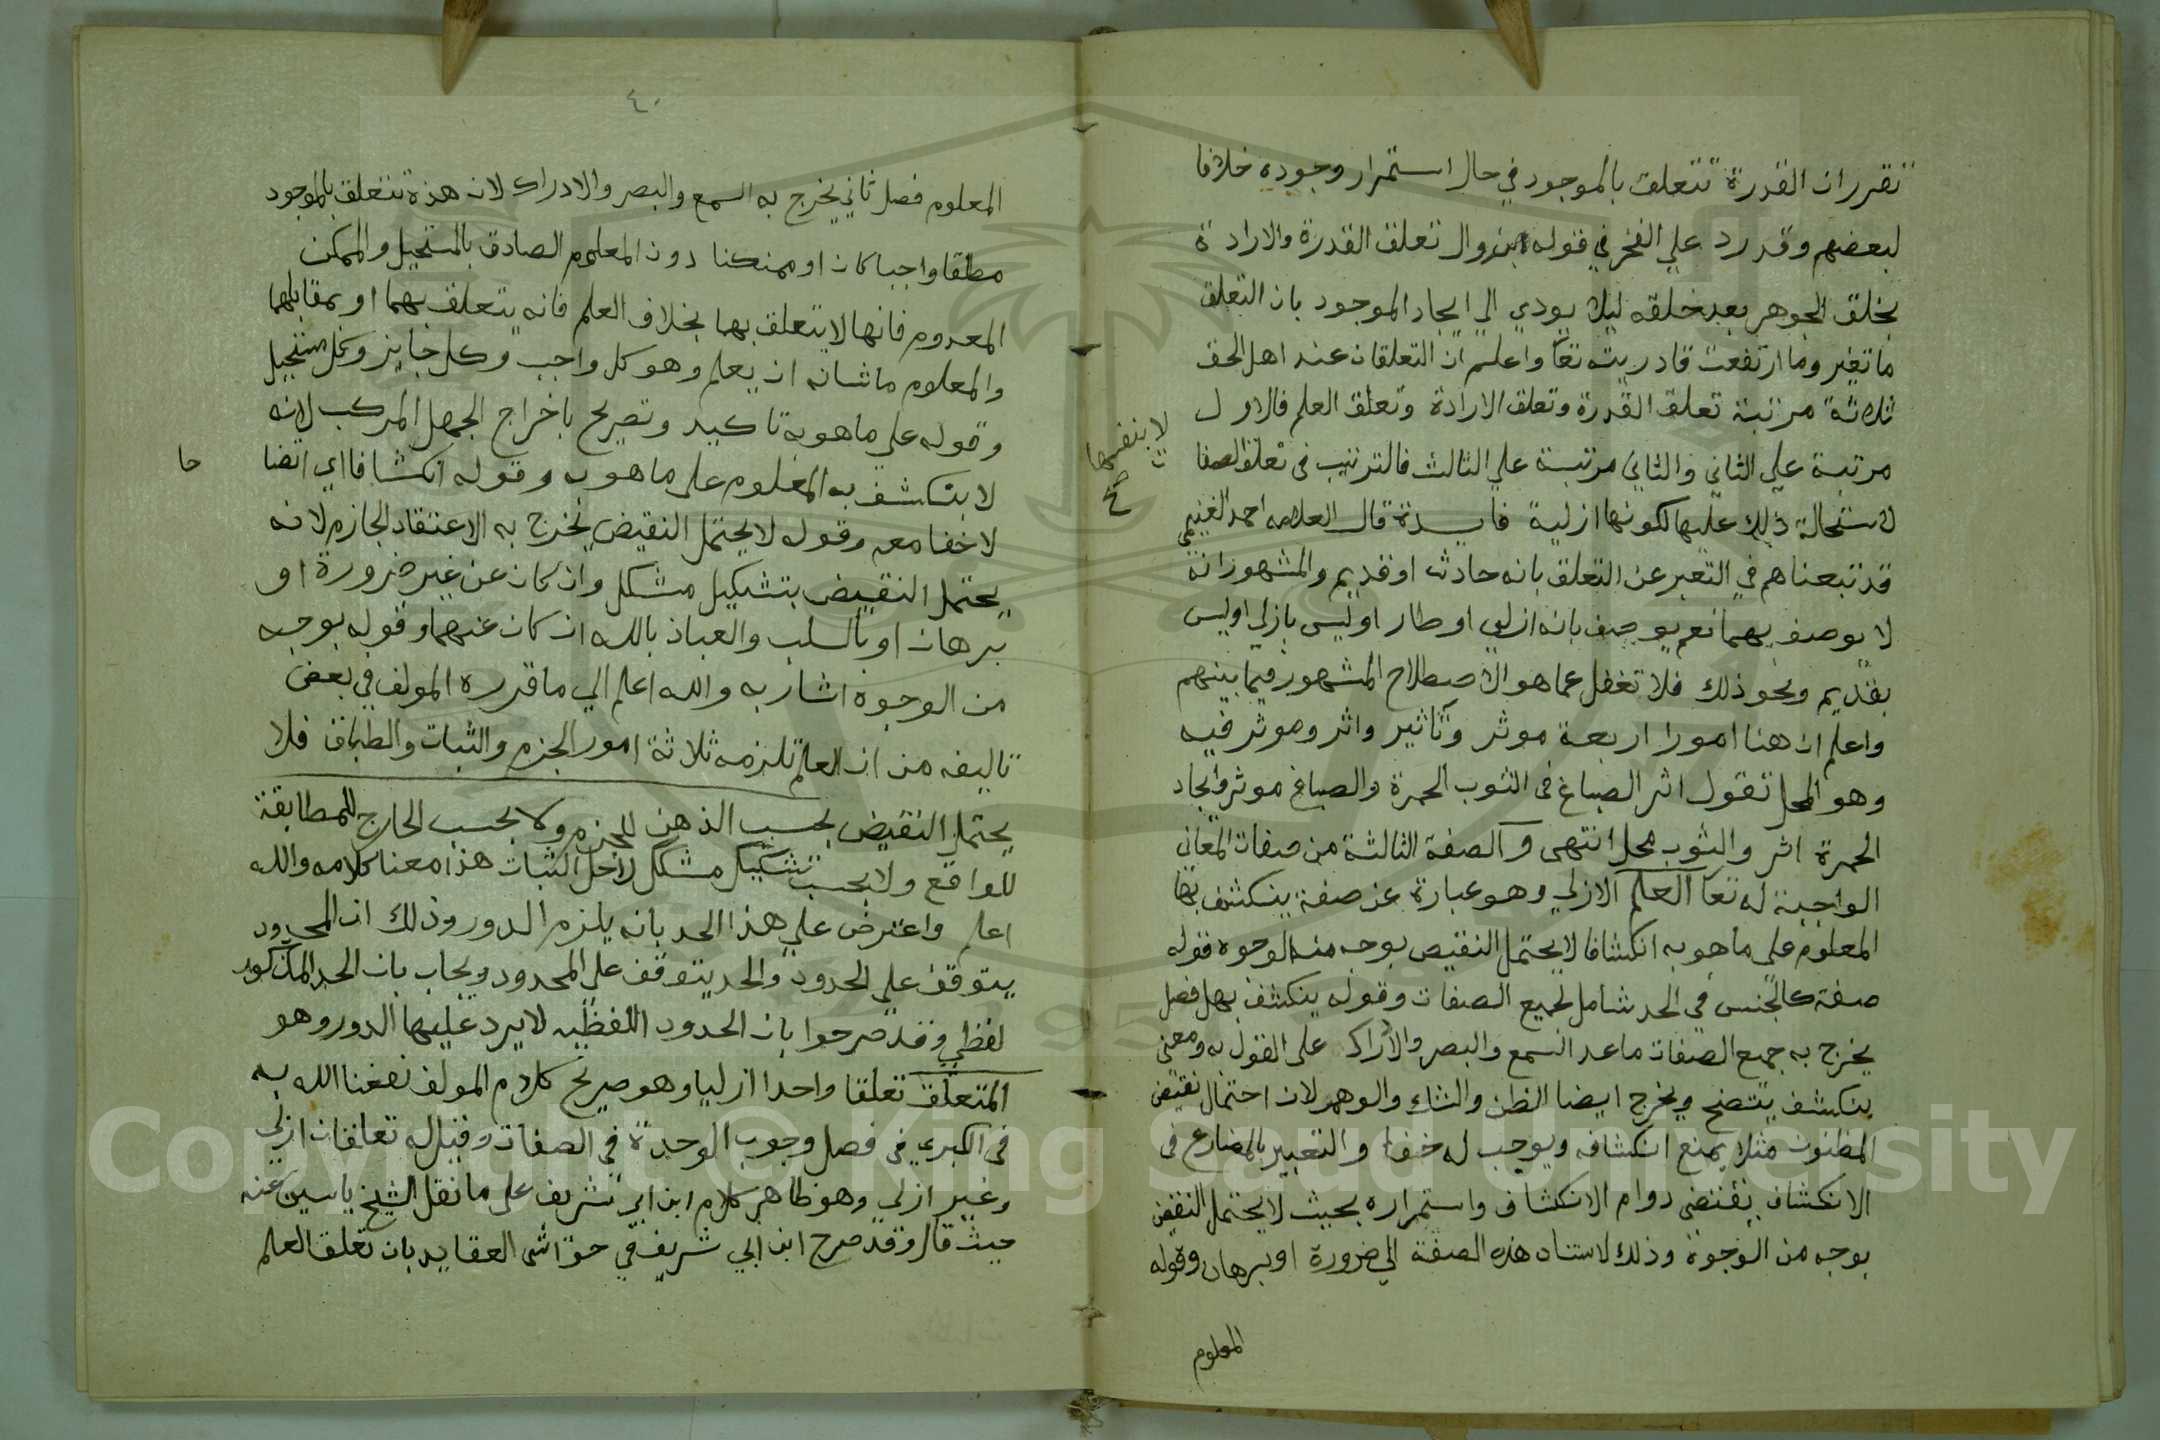 تقرر ان القدرة تتعلق بالموجود في حال استمرار وجوده خلافا
لبعضهم وقد رد علي الفخر في قوله بزوال تعلق القدرة والارادة
بخلق الجوهر بعد خلقه ليلا يودي الي ايجاد الموجود بان التعلق
ما تغير وما ارتفعت قادريته تعا واعلم ان التعلقات عند اهل الحق
ثلاثة مرتبة تعلق القدرة وتعلق الارادة وتعلق العلم فالاول
مرتبة علي الثاني والثاني مرتبة علي الثالث فالترتيب في تعلق الصفا
لا بنفسها
صح
لاستحالة ذلك عليها لكونها ازلية فايدة قال العلامه احمد الغنيمي
قد تبعناهم في التعبر عن التعلق بانه حادث او قديم والمشهور انه
لا يوصف بهما نعم يوصف بانه ازلي او طار او ليس بازلي او ليس
بقديم ونحو ذلك فلا تغفل عما هو الاصطلاح المشهور فيما بينهم
واعلم ان هنا امورا اربعة موثر وتاثير واثر وموثر فيه
وهو المحل تقول اثر الصباغ في الثوب الحمرة والصباغ موثر وايجاد
الحمرة اثر والثوب محل انتهى والصفة الثالثة من صفات المعاني
الواجبة له تعا العلم الازلي وهو عبارة عن صفة ينكشف بها
المعلوم على ما هو به انكشافا لا يحتمل النقيض بوجه من الوجوه فقوله
صفة كالجنس في الحد شامل لجميع الصفات وقوله ينكشف بها فصل
يخرج به جميع الصفات ما عدا السمع والبصر والادراك على القول به ومعنى
ينكشف يتضح ويخرج ايضا الظن والشك والوهم لان احتمال نقيض
المظنون مثلا يمنع انكشافه ويوجب له خفا والتعبير بالمضارع في
الانكشاف يقتضي دوام الانكشاف واستمراره بحيث لا يحتمل النقيض
بوجه من الوجوة وذلك لاستناد هذه الصفة الي ضرورة او برهان وقوله
المعلوم
٤٠
المعلوم فصل ثاني يخرج به السمع والبصر والادراك لان هذة تتعلق بالموجود
مطلقا واجبا كان او ممنكنا دون المعلوم الصادق بالمستحيل والممكن
المعدوم فانها لا يتعلق بها بخلاف العلم فانه يتعلق بهما او بمقابلهما
والمعلوم ما شانه ان يعلم وهو كل واجب وكل جايز وكل مستحيل
وقوله علي ما هو به تاكيد وتصريح باخراج الجهل المركب لانه
لا ينكشف به المعلوم على ما هو به وقوله انكشافا اي اتضا
حا
لا خفا معه وقوله لا يحتمل النقيض يخرج به الاعتقاد الجازم لانه
يحتمل النقيض بتشكيل مشكل وان كان عن غير ضرورة او
برهان او بالسلب والعياذ بالله ان كان عنهما وقوله بوجه
من الوجوه اشار به والله اعلم الي ما قرره المولف في بعض
تاليفه من ان العلم تلزمه ثلاثة امور الجزم والثبات والطباق فلا
يحتمل النقيض بحسب الذهن للجزم ولا بحسب الخارج للمطابقة
للواقع ولا بحسب تشكيك مشكل لاجل الثبات هذا معنا كلامه والله
اعلم واعترض علي هذا الحد بانه يلزم الدور وذلك ان المحدود
يتوقف على الحدود والحد يتوقف على المحدود ويجاب بان الحد المذكور
لفظي وقد صرحوا بان الحدود اللفظيه لا يرد عليها الدور وهو
المتعلق تعلقا واحدا ازليا وهو صريح كلام المولف نفعنا الله به
في الكبري في فصل وجوب الوحدة في الصفات وقيل له تعلقات ازلي
وغير ازلي وهو ظاهر كلام ابن ابي شريف على ما نقل الشيخ ياسين عنه
حيث قال وقد صرح ابن ابي شريف في حواشى العقايد بان تعلق العلم
Copyright © King Saud University